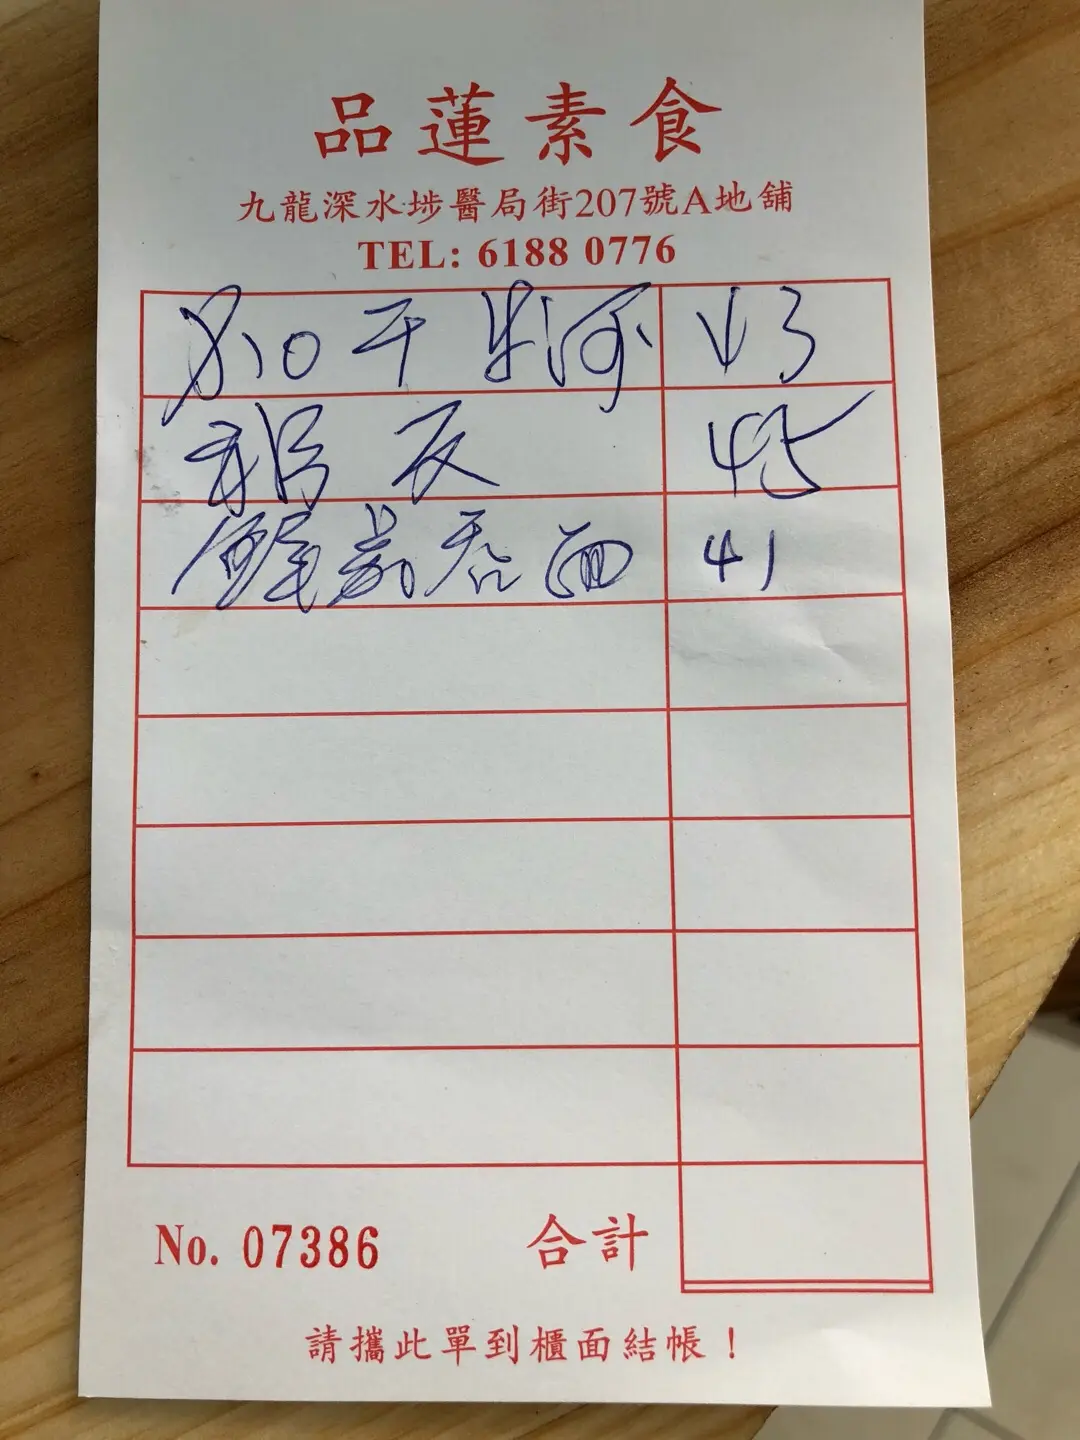 品蓮素食
九龍深水埗醫局街207號A地舖
TEL: 6188 0776
加干牛河 43
反 45
面 41
No. 07386 合計
請攜此單到櫃面結帳！